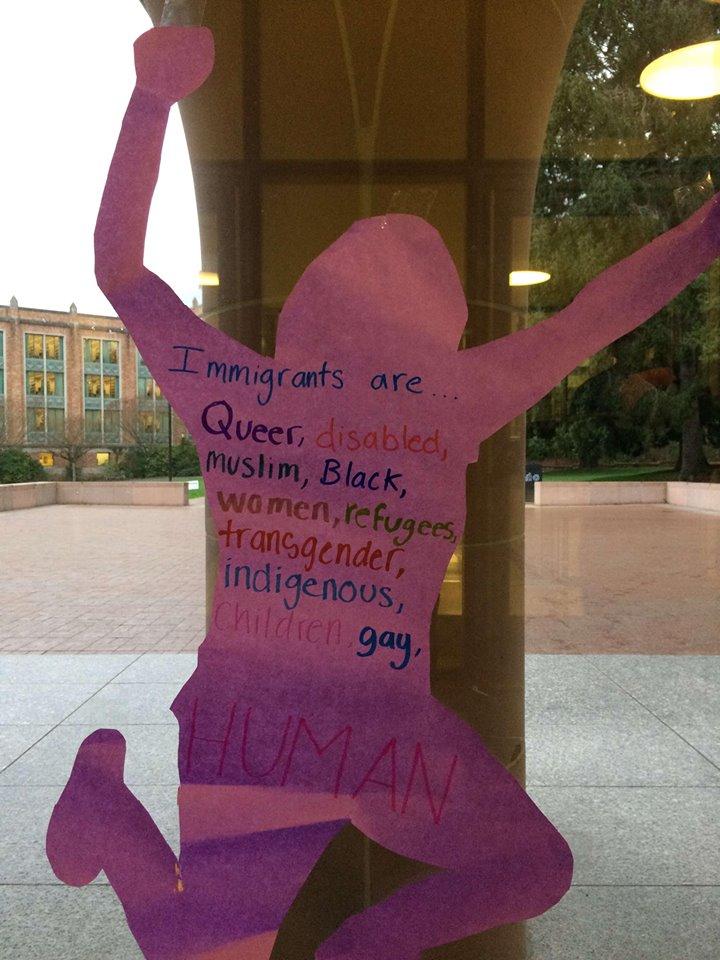 Immigrants are...
Queer, disabled,
muslim, Black,
women, refugees,
transgender,
indigenous,
children, gay,
HUMAN